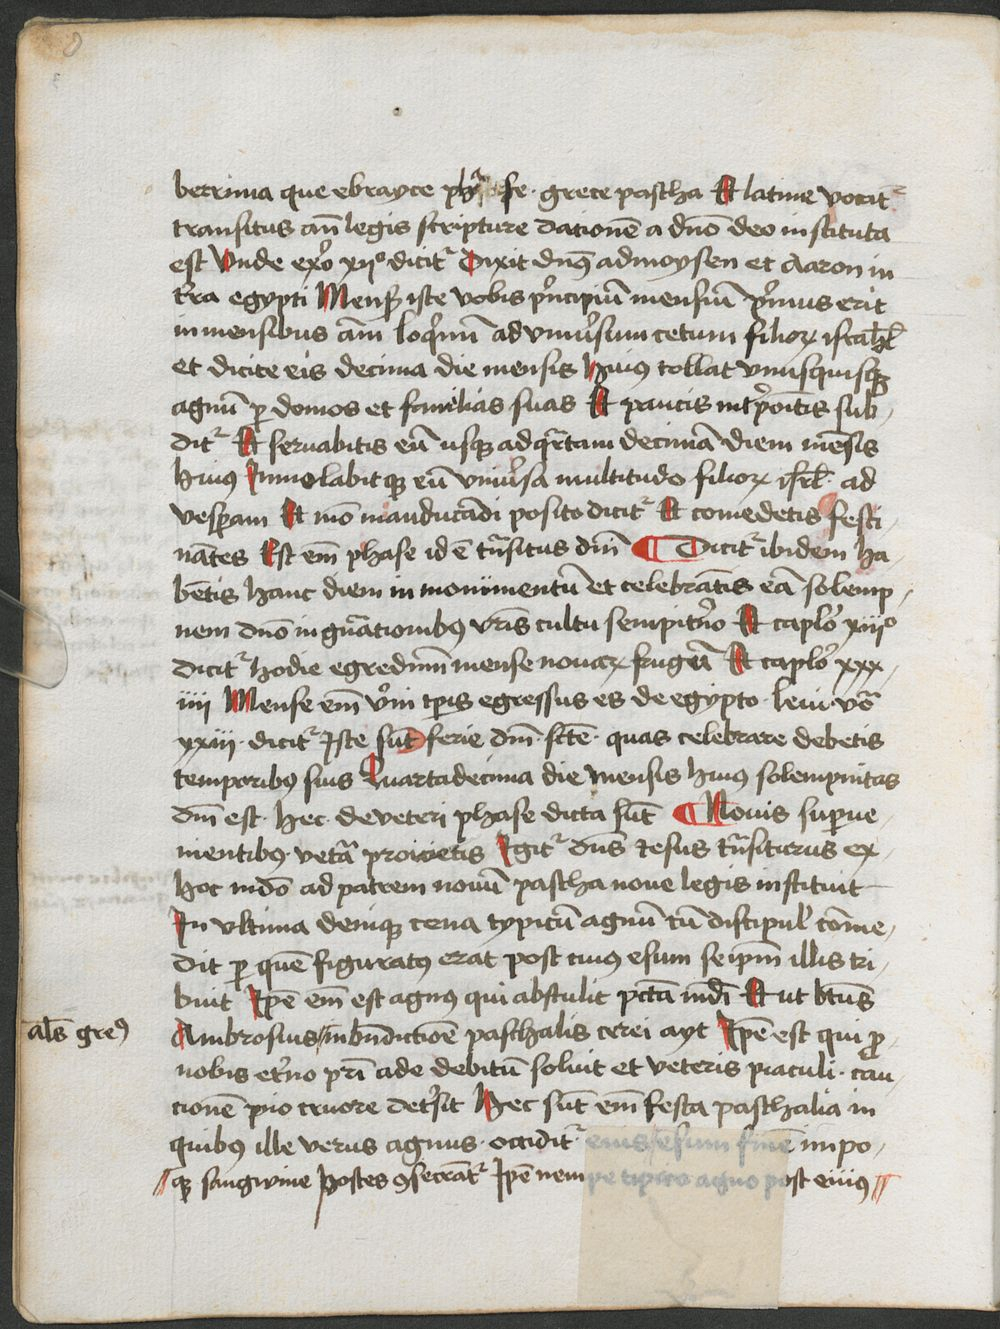 berrima que ebrayce phase · grece pascha Et latine vocat᷑
transitus an̄ legis scripture dationē a dnō deo instituta
est Unde exo̓ xijº dicit᷑ Dixit dn̄s ad moysen et Aaron in
t̓ra egypti Mensis iste vobis p̓ncipiū mensiū p̓mus erit
in mensibus an̄i loq̓mī ad vniu̓sum cetum filioꝝ israhel̄
et dicite eis decima die mensis huiꝰ tollat vnusquisqꝫ
agnū ꝑ domos et familias suas Et paucis int̓positis sub-
dit᷑ Et seruabitis eū usqꝫ ad q̓rtam decimā diem mēsis
huiꝰ Immolabitqꝫ eū vniu̓sa multitudo filioꝝ isrl̄ · ad
vesꝑam Et mō manducādi posito dicit᷑ Et comedetis festi-
nātes Est em̄ phase id ē trāsitus dnī ¶ Dicit᷑ ibidem ha-
bētis hanc diem in monimentū et celebrātis eā solemp-
nem dnō in gn̄ationibꝰ vr̄is cultu sempit̓no Et caplo̓ xiijº
dicit᷑ hodie egredimī mense nouaꝝ frugū Et caplo̓ xxx-
iiij Mense em̄ v̓ni tꝑis egressus es de egypto · leui · vo̓
xxiij · dicit᷑ Iste sūt ferie dnī · sctē · quas celebrare debetis
temporibꝰ suis Quartadecima die mensis huiꝰ solempnitas
dnī est · hec · de veteri phase dicta sūt ¶ Nouis suꝑue-
nientibꝰ vet̓a proicietis Igit᷑ dn̄s Iesus trāsiturus ex-
hoc mdō ad patrem nouū pascha noue legis instituit
In vltima deniqꝫ cena typicū agnū cū discipul̓ come-
dit ꝑ quē figuratꝰ erat post cuiꝰ esum seipm̄ illis tri-
buit Ipē em̄ est agnꝰ qui abstulit pctā mdī Et ut btūs
al̄s greꝰ
Ambrosius / in bn̄dictionē paschalis cerei ayt Ipē est qui ꝑ
nobis et̓no pr̄i ade debitū soluit et veteris piaculi · cau-
cionē pio cruore det̓sit Hec sūt em̄ festa paschalia in
quibꝰ ille verus agnus · occidit᷑ eius esum finē impo-
qꝫ sangwine postes ꝯsecrāt᷑ Ipē nempe tipico agno post eiuiꝰ